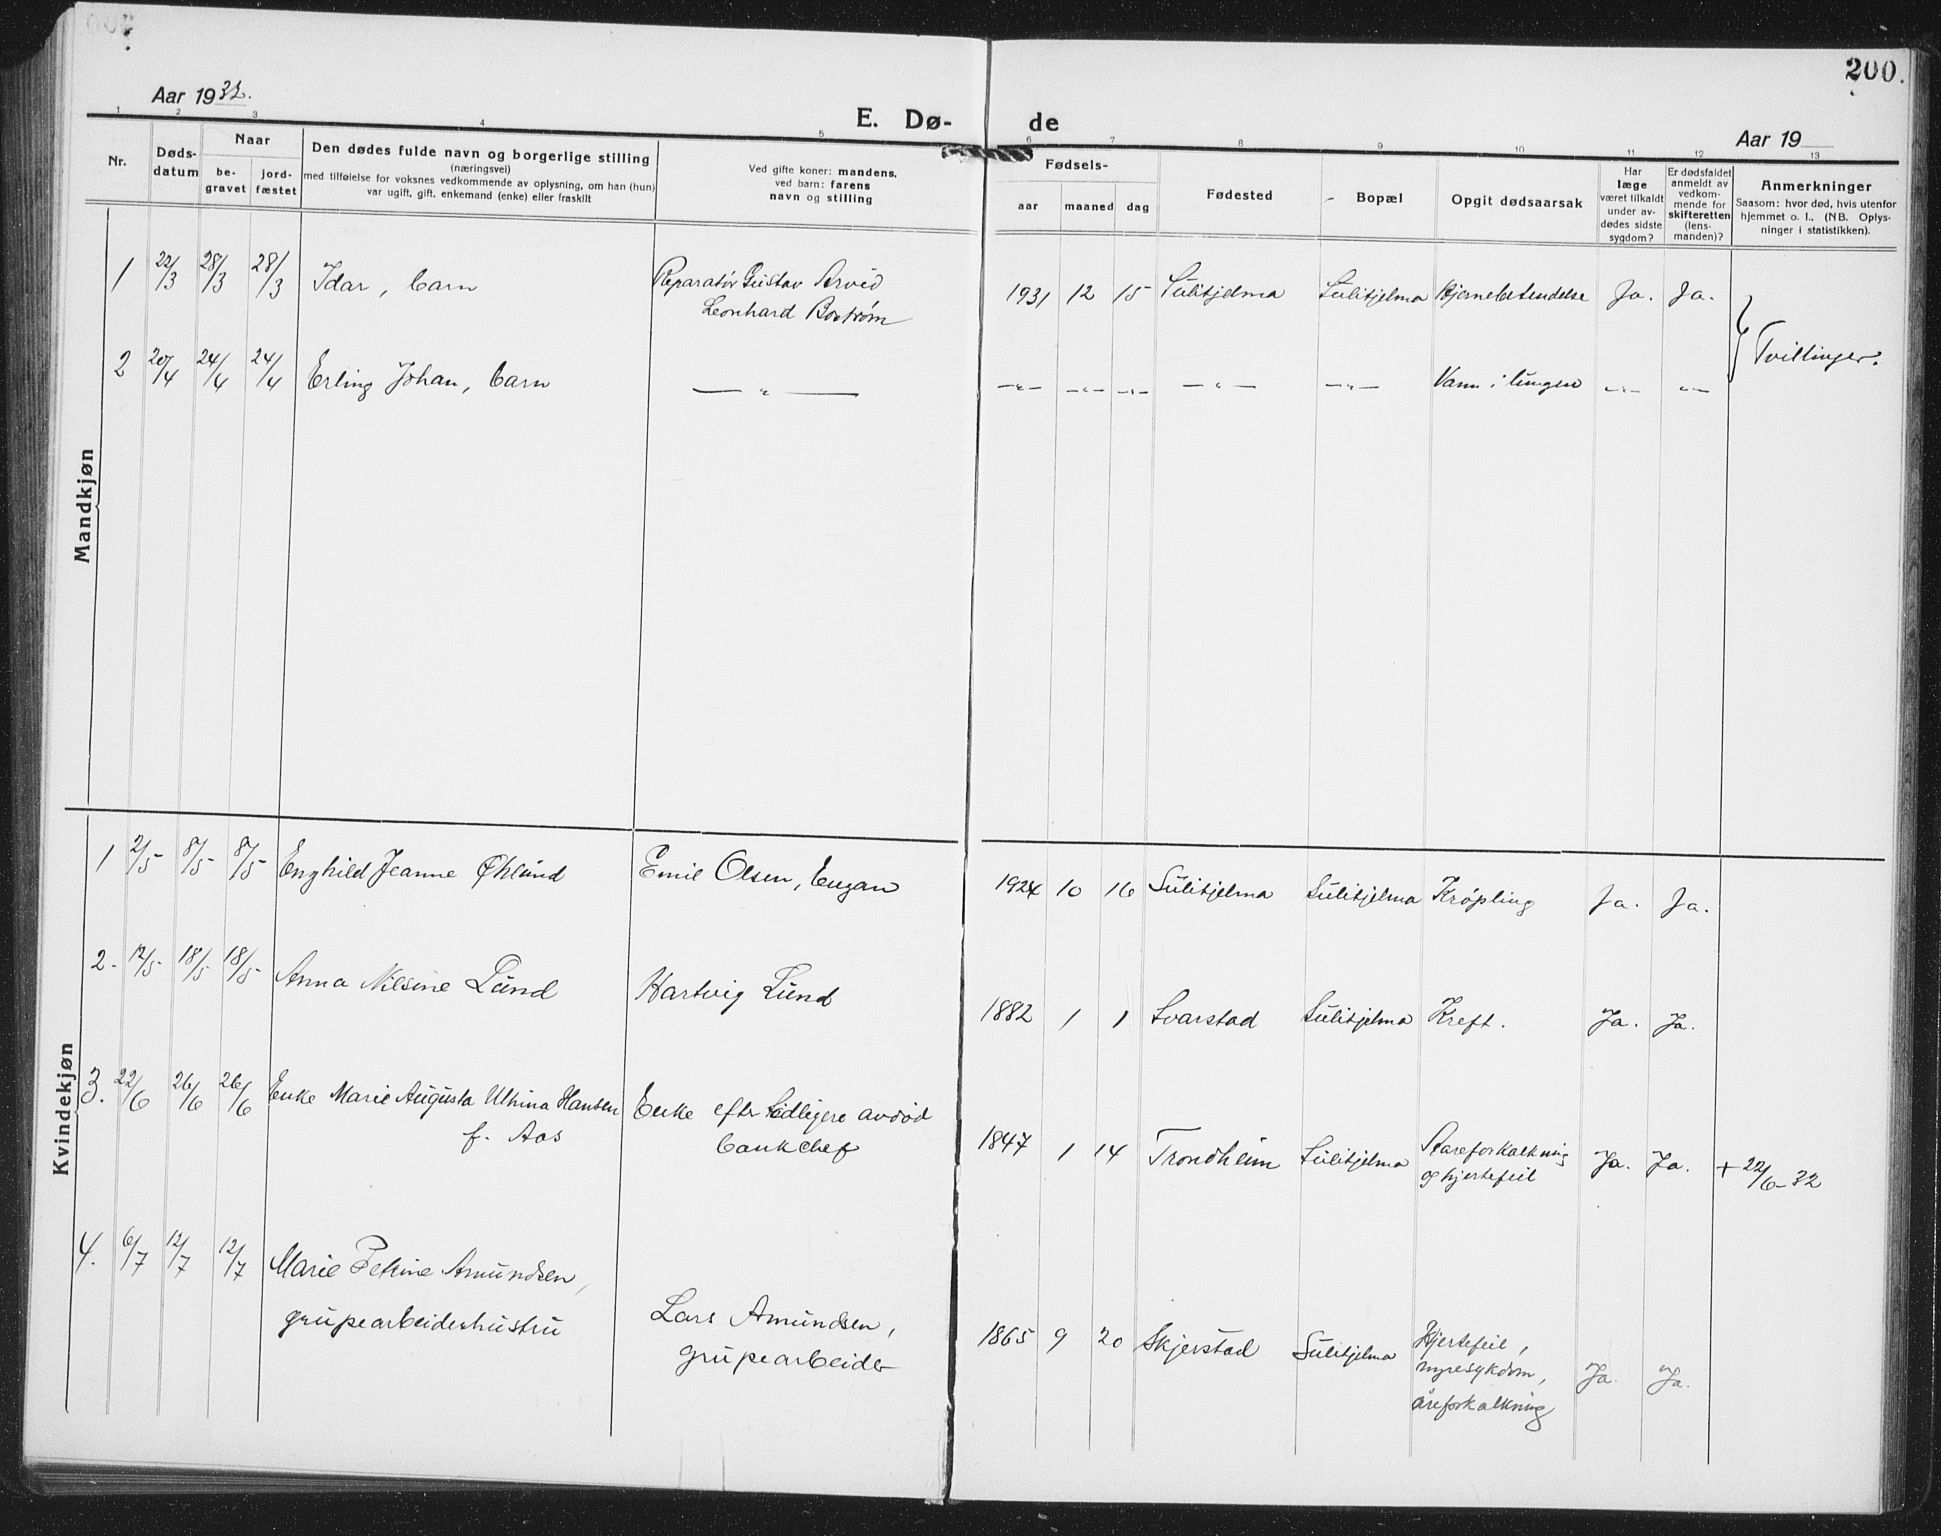 200.
Aar 1932.
E. Dø-
de
Aar 19
1 2 3 4 5 6 7 8 9 10 11 12 13
Nr.
Døds-
datum
Naar
be-
gravet
jord-
fæstet
Den dødes fulde navn og borgerlige stilling
(næringsvei)
med tilføielse for voksnes vedkommende av oplysning, om han (hun)
var ugift, gift, enkemand (enke) eller fraskilt
Ved gifte koner: mandens,
ved barn: farens
navn og stilling
Fødsels-
aar maaned dag
Fødested
Bopæl
Opgit dødsaarsak
Har
læge
været tilkaldt
under av-
dødes sidste
sygdom?
Er dødsfaldet
anmeldt av
vedkom-
mende for
skifteretten
(lens-
manden)?
Anmerkninger
Saasom: hvor død, hvis utenfor
hjemmet o. l., (NB. Oplys-
ninger i statistikken).
Mandkjøn
1 22/3 28/3 28/3 Idar, barn Reparatør Gustav Arvid
Leonhard Boström
1931 12 15 Sulitjelma Sulitjelma Hjernebetendelse Ja. Ja.
Tvillinger.
2 20/4 24/4 24/4 Erling Johan, barn — " —
—"— —"— —"— —"— —"— Vann i lungen —"— —"—
Kvindekjøn
1 2/5 8/5 8/5 Enghild Jeanne Øhlund Emil Olsen, Eugan
1924 10 16 Sulitjelma Sulitjelma Krøpling Ja. Ja.
2. 12/5 18/5 18/5 Anna Nilsine Lund Hartvig Lund
1882 1 1 Svarstad Sulitjelma Kreft. Ja. Ja.
3. 22/6 26/6 26/6 Enke Marie Augusta Ulkina Hansen
f. Aas
Enke efter tidligere avdød
bankchef
1847 1 14 Trondheim Sulitjelma Åreforkalkning
og hjertefeil
Ja. Ja. + 22/6-32
4. 6/7 12/7 12/7 Marie Petrine Amundsen,
grupearbeiderhustru
Lars Amundsen,
grupearbeider
1865 9 20 Skjerstad Sulitjelma Hjertefeil,
nyresykdom,
åreforkalkning
Ja. Ja.